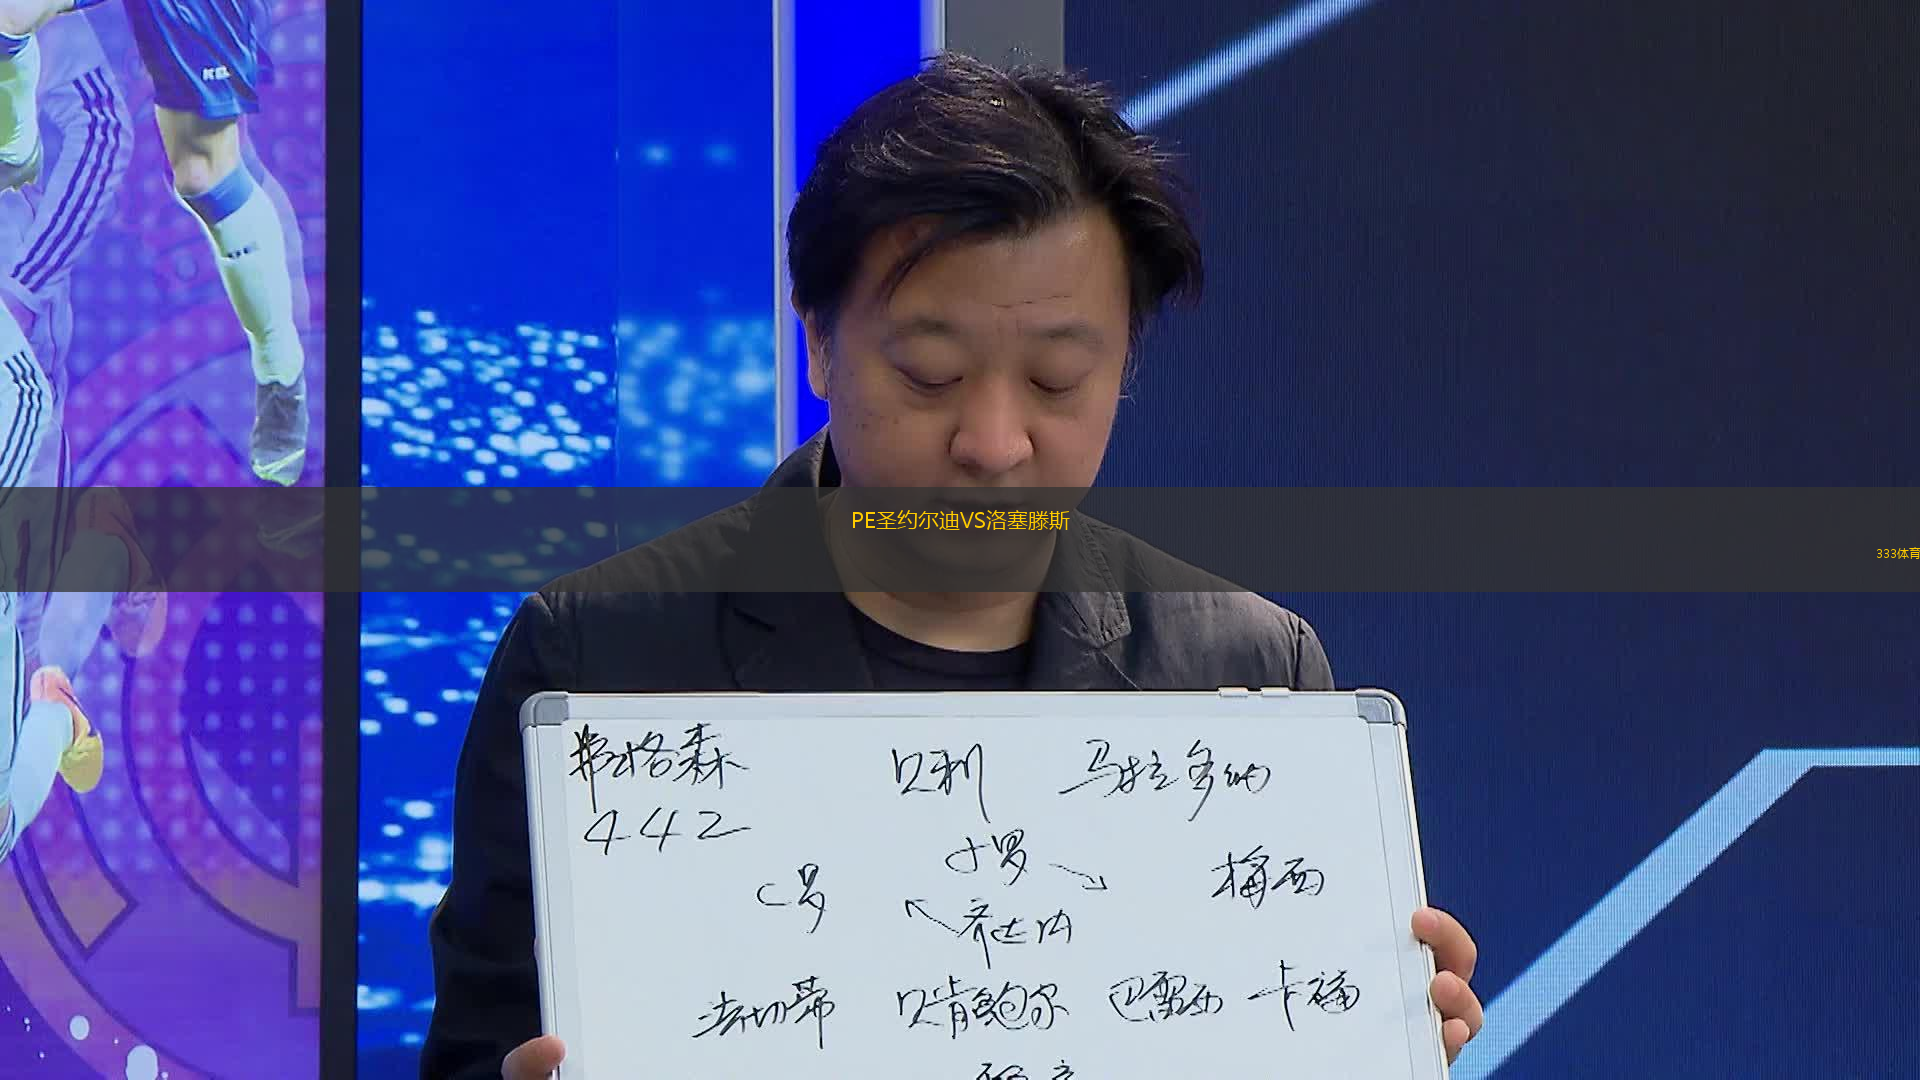 KEL
PE圣约尔迪VS洛塞滕斯
333体育
弗格森 贝利 马拉多纳
442
大罗
C罗 梅西
齐达内
法切蒂 贝肯鲍尔 巴雷西 卡福